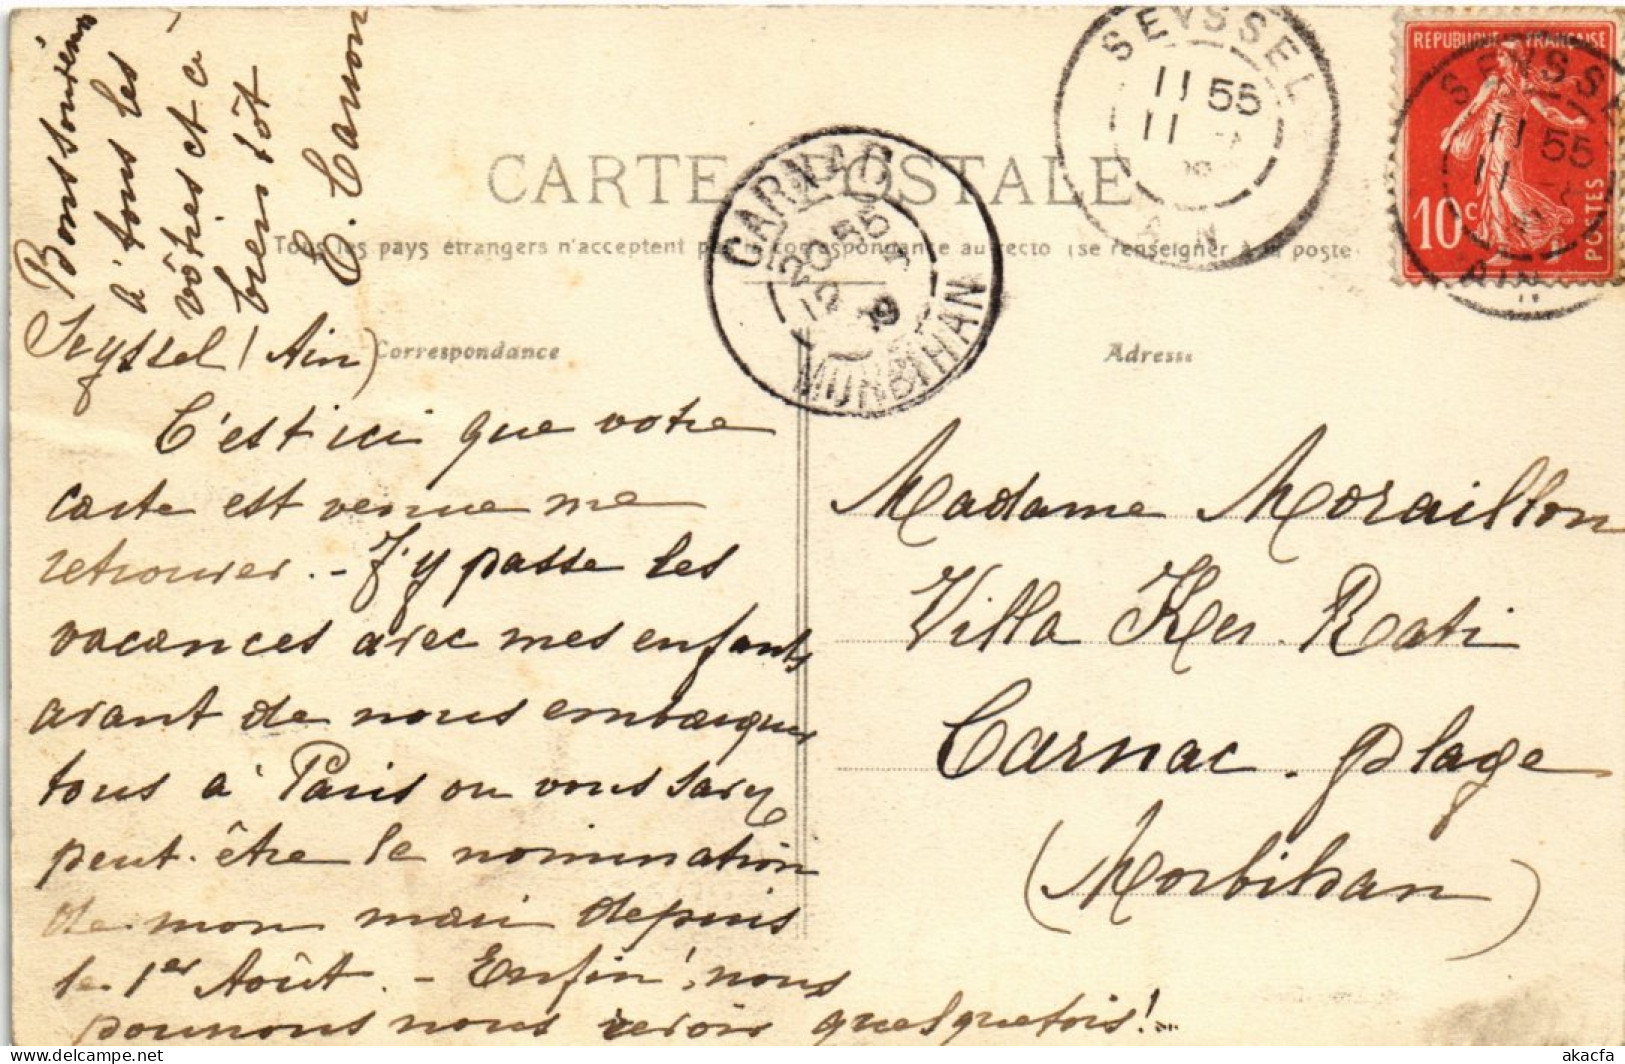 CARTE POSTALE
Tous les pays étrangers n'acceptent pas la correspondance au recto (se renseigner à la poste
Correspondance
Adresse
SEYSSEL
11 55
11
AIN
REPUBLIQUE FRANÇAISE
10c
POSTES
SEYSSEL
11 55
11
AIN
CARNAC
20 55
12 8
MORBIHAN
Seyssel (Ain)
C'est ici que votre
carte est venue me
retrouver. - J'y passe les
vacances avec mes enfants
avant de nous embarquer
tous à Paris ou vous savez
peut-être la nomination
de mon mari depuis
le 1er Août. - Enfin, nous
pourrons nous revoir quelquefois!
Bons souvenirs
à tous les
vôtres et à
bien tôt
Madame Moraillon
Villa Ker. Rati
Carnac. plage
(Morbihan)
akacfa
www.delcampe.net